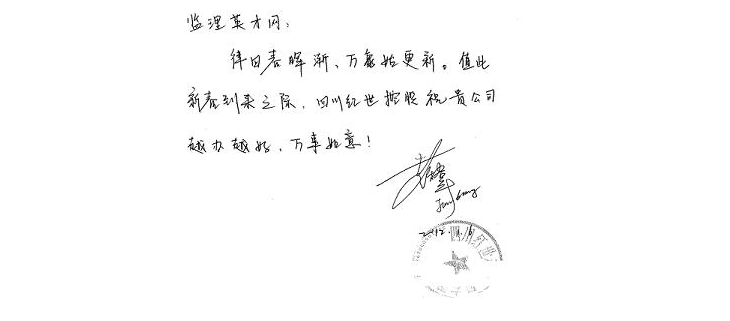 监理英才网:
律回春晖渐、万象始更新。值此
新春到来之际,四川红世控股祝贵公司
越办越好、万事如意!
2012.1.6
四川红世